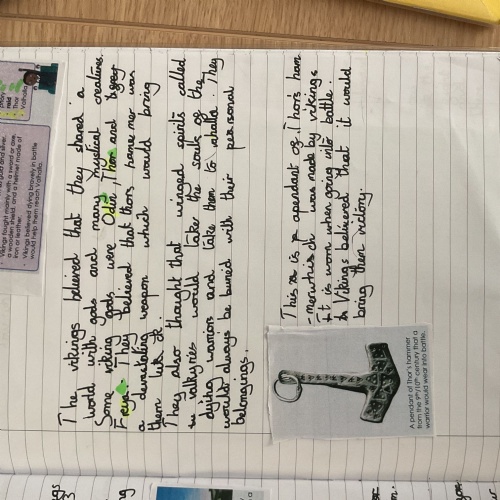 and silver.
Vikings fought mainly with a sword or axe,
a wooden shield, and a helmet made of
iron or leather.
• Vikings believed dying bravely in battle
would help them reach Valhalla.
Thor
Valhalla
The vikings believed that they shared a
world with gods and many mystical creatures.
Some viking gods were Odin, Thor, Tyr and
Freya. They believed that thors hammer was
a devastating weapon which would bring
them luck.
They also thought that winged spirits called
valkyries would take the souls of the
dying warriors and take them to valhalla. They
would always be buried with their personal
belongings.
This is a pendant of Thor's ham
-mer which was made by vikings
It is worn when going into battle.
Vikings believed that it would
bring them victory.
A pendant of Thor's hammer
from the 9th/10th century that a
warrior would wear into battle.